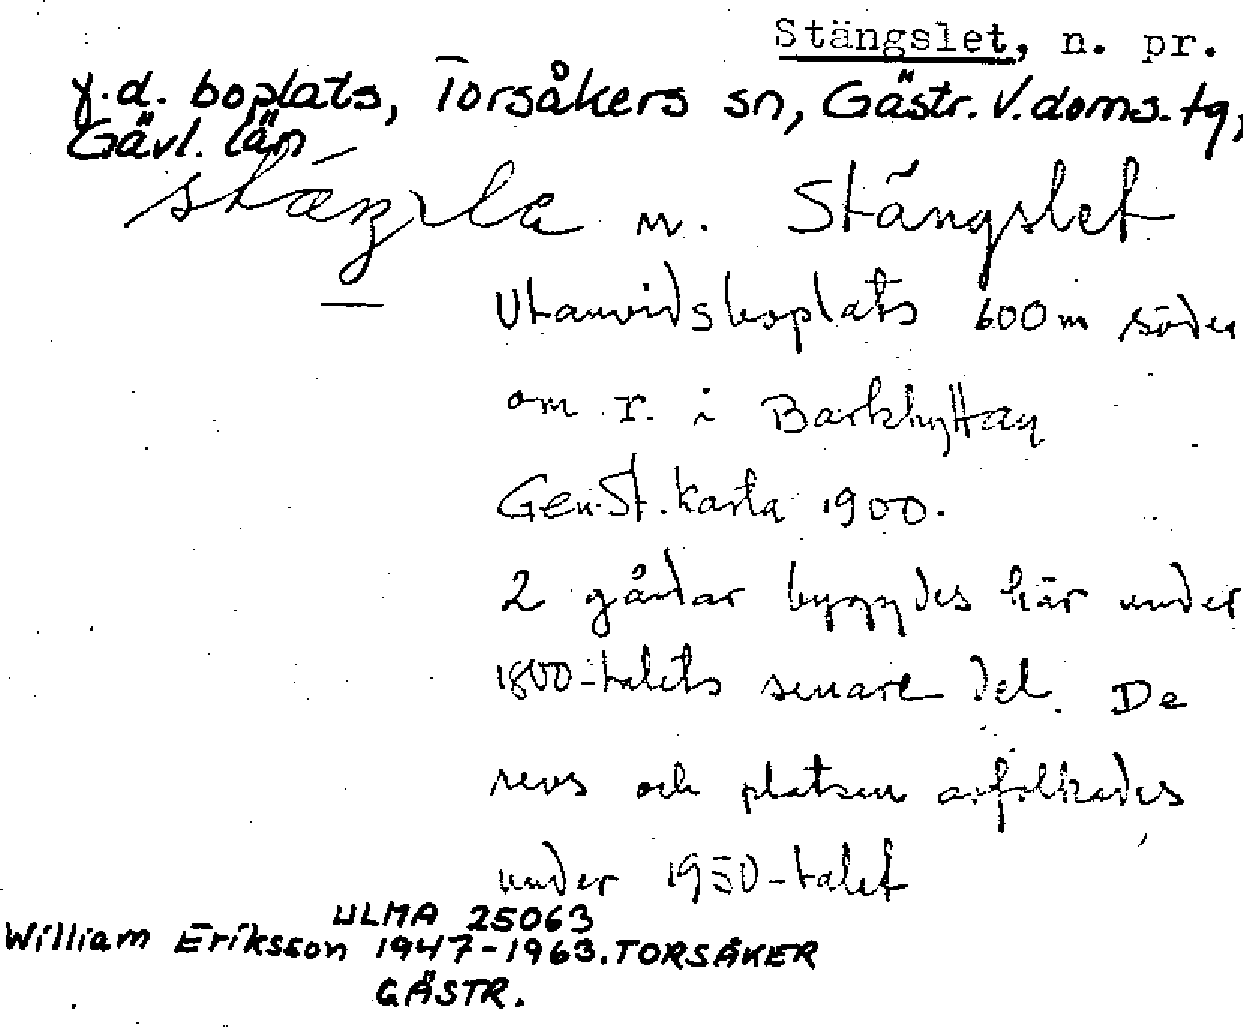 Stängslet, n. pr.
f.d. boplats, Torsåkers sn, Gästr. V. doms. tg,
Gävl. län
n. Stängslet
Utanvidsboplats 600 m söder
om r. i Barkhyttan
Gen. St. karta 1900.
2 gårdar byggdes här under
1800-talets senare del. De
revs och platsen avfolkades
under 1950-talet
ULMA 25063
William Eriksson 1947-1963. TORSÅKER
GÄSTR.